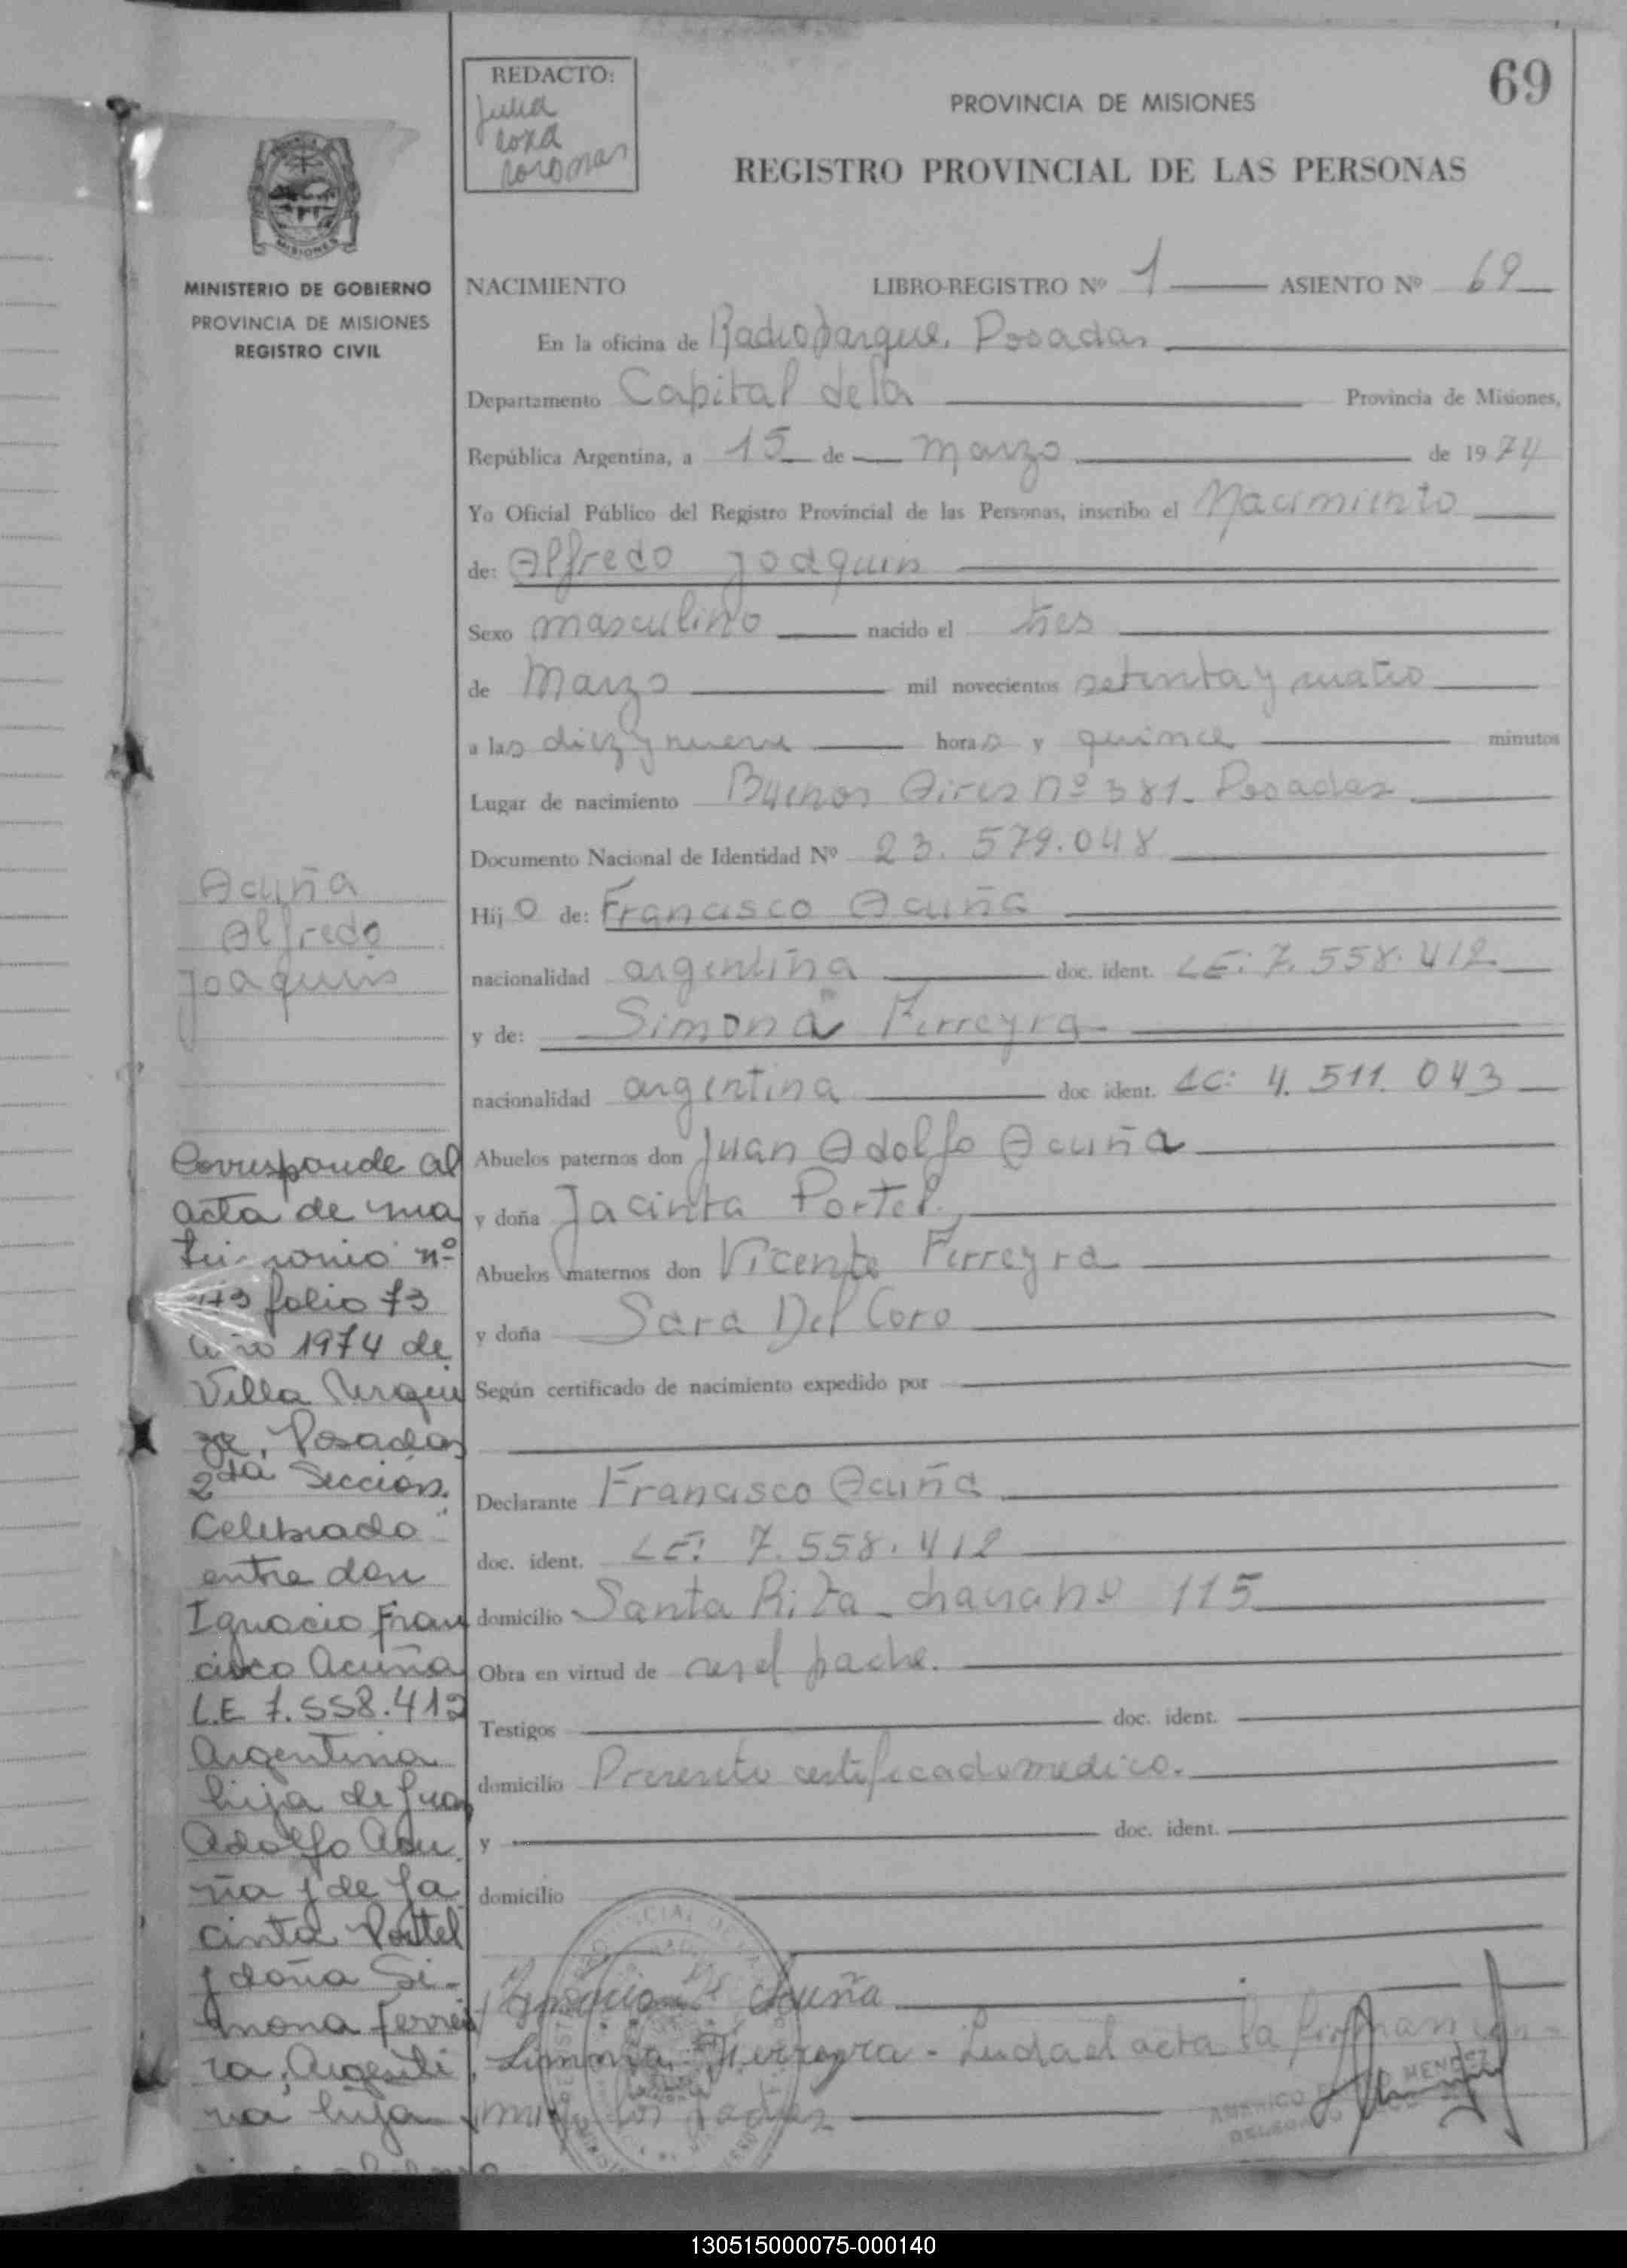 69
REDACTO:
Julia
coromas
PROVINCIA DE MISIONES
REGISTRO PROVINCIAL DE LAS PERSONAS
MISIONES
MINISTERIO DE GOBIERNO
PROVINCIA DE MISIONES
REGISTRO CIVIL
NACIMIENTO LIBRO-REGISTRO Nº 1 ASIENTO Nº 69
En la oficina de Radioparque. Posadas
Departamento Capital de la Provincia de Misiones,
República Argentina, a 15 de marzo de 1974
Yo Oficial Público del Registro Provincial de las Personas, inscribo el Nacimiento
de: Alfredo Joaquin
Sexo masculino nacido el tres
de Marzo mil novecientos setenta y cuatro
a las diez y nueve horas y quince minutos
Lugar de nacimiento Buenos Aires nº 381- Posadas
Documento Nacional de Identidad Nº 23.579.048
Hijo de: Francisco Acuña
nacionalidad argentina doc. ident. LE: 7.558.412
y de: Simona Ferreyra
nacionalidad argentina doc ident. LC: 4.511.043
Abuelos paternos don Juan Adolfo Acuña
y doña Jacinta Portel.
Abuelos maternos don Vicente Ferreyra
y doña Sara Del Coro
Según certificado de nacimiento expedido por
Declarante Francisco Acuña
doc. ident. LE: 7.558.412
domicilio Santa Rita - chacra nº 115
Obra en virtud de ser el padre.
Testigos doc. ident.
domicilio Presento certificado medico.
y doc. ident.
domicilio
Acuña
Simona Ferreyra - Leida el acta la firman con-
migo los padres
Acuña
Alfredo
Joaquin
Corresponde al
acta de ma
trimonio nº
folio 73
año 1974 de
Villa Urqui
za, Posadas
2da Sección.
Celebrado
entre don
Ignacio Fran
cisco Acuña
L.E 7.558.412
Argentina
hijo de Juan
Adolfo Acu
ña y de Ja
cinta Portel
y doña Si-
mona Ferrei
ra, Argenti
na hija
130515000075-000140